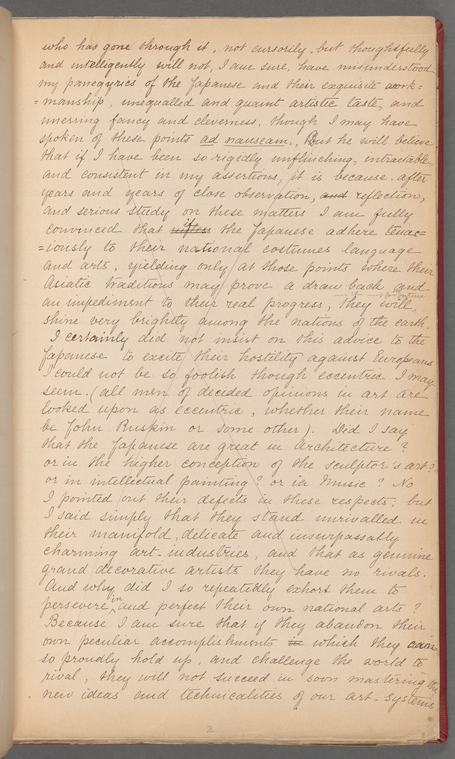 who has gone through it, not cursorily, but thoughtfully
and intelligently will not, I am sure, have misunderstood
my panegyrics of the Japanese and their exquisite work=
=manship, unequalled and quaint artistic taste, and
unerring fancy and cleverness, though I may have
spoken of these points ad nauseam. But he will believe
that if I have been so rigedly unflinching, intractable
and consistent in my assertions, it is because after
years and years of close observation, and reflection,
and serious study on these matters I am fully
convinced that if the Japanese adhere tenac=
=iously to their national costumes language
and arts, yielding only at those points where their
Asiatic traditions may prove a draw back and
an impediment to their real progress, they will
shine very brightly among the nations of the earth.
I certainly did not insist on this advice to the
Japanese to excite their hostility against Europeans
I could not be so foolish though eccentric I may
seem. (all men of decided opinions in art are
looked upon as eccentric, whether their name
be John Ruskin or some other). Did I say
that the Japanese are great in Architecture?
or in the higher conception of the sculptor's art?
or in intellectual painting? or in Music? No
I pointed out their defects in these respects; but
I said simply that they stand unrivalled in
their manifold, delicate and unsurpassably
charming art-industries, and that as genuine
grand decorative artists they have no rivals.
And why did I so repeatedly exhort them to
persevere in and perfect their own national arts?
Because I am sure that if they abandon their
own peculiar accomplishments in which they can
so proudly hold up, and challenge the world to
rival, they will not succeed in soon mastering the
new ideas and technicalities of our art-systems
2